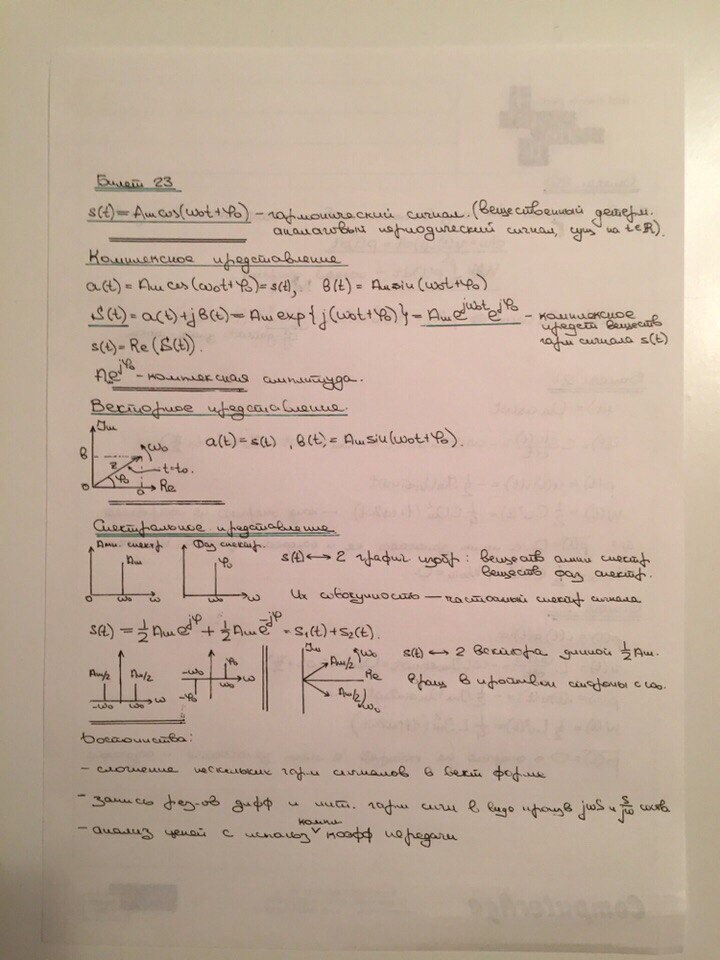 Билет 23
s(t) = Am cos(ω0t+φ0) – гармонический сигнал. (вещественный детерм.
аналоговый периодический сигнал, сущ на t∈R).
Комплексное представление
a(t) = Am cos(ω0t+φ0) = s(t), b(t) = Am sin(ω0t+φ0)
Ṡ(t) = a(t)+jb(t) = Am exp{j(ω0t+φ0)} = Am e^jω0t e^jφ0 – комплексное
предст веществ
гарм сигнала s(t)
s(t) = Re(Ṡ(t)).
Ae^jφ0 – комплексная амплитуда.
Векторное представление.
Im
ω0
a(t) = s(t), b(t) = Am sin(ω0t+φ0).
b
z
t=t0.
φ0
0 a Re
Спектральное представление.
Амп. спектр Фаз спектр.
s(t) ↔ 2 график изобр: веществ ампл спектр
веществ фаз спектр.
Am φ0
0 ω0 ω ω0 ω
Их совокупность – частотный спектр сигнала
s(t) = ½ Am e^jφ + ½ Am e^-jφ = s1(t) + s2(t).
Im
ω0
Am/2 Am/2
-ω0 ω0 ω
-ω0 φ0
ω0 ω
-φ0
Am/2
Re
Am/2
ω0
s(t) ↔ 2 вектора длиной ½ Am.
вращ в противоп стороны с ω0.
Достоинства:
– сложение нескольких гарм сигналов в вект форме
– запись рез-ов дифф и инт. гарм сигн в виде произв jωS и S/jω соотв.
– анализ цепей с использ компл коэфф передачи
ComputerAge